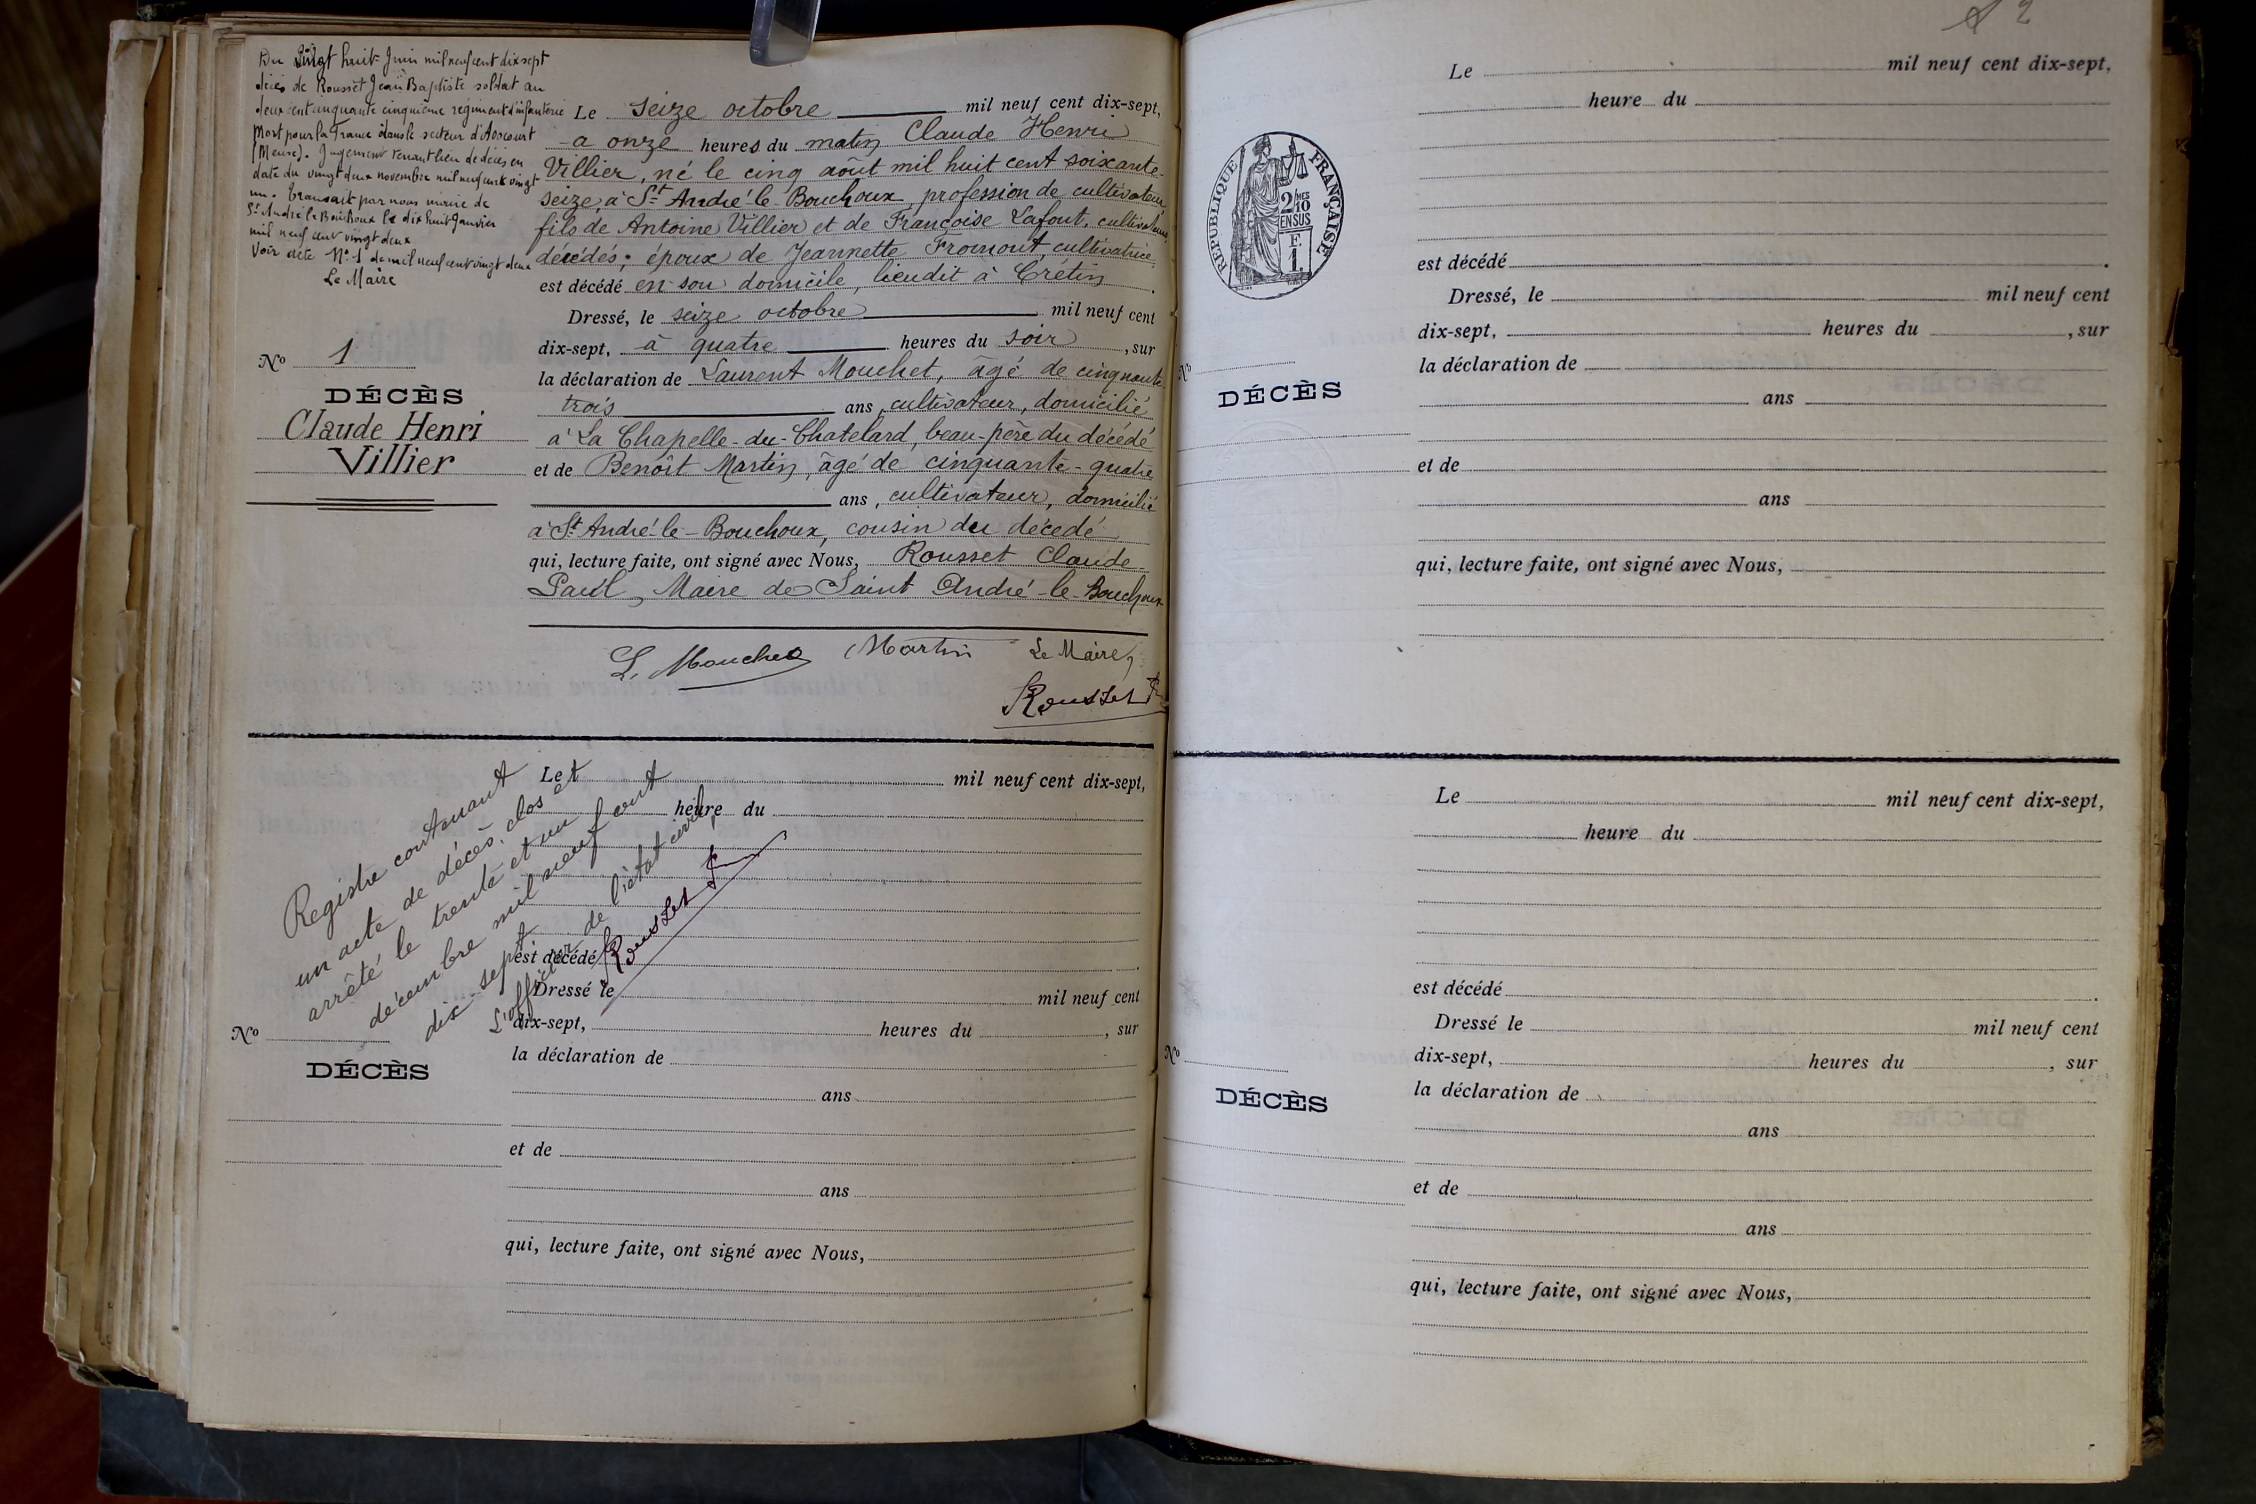 Du Vingt huit Juin mil neuf cent dix sept
décès de Rousset Jean Baptiste soldat au
deux cent cinquante cinquième régiment d'infanterie
Mort pour la France dans le secteur d'Avocourt
(Meuse). Jugement tenant lieu de décès en
date du vingt deux novembre mil neuf cent vingt
un. Transcrit par nous maire de
St André le Bouchoux le dix huit Janvier
mil neuf cent vingt deux
Voir acte No 1 de mil neuf cent vingt deux
Le Maire
No 1
DÉCÈS
Claude Henri
Villier
Le seize octobre mil neuf cent dix-sept,
à onze heures du matin Claude Henri
Villier, né le cinq août mil huit cent soixante-
seize, à St André-le-Bouchoux, profession de cultivateur
fils de Antoine Villier et de Françoise Lafont, cultivateurs,
décédés; époux de Jeannette Fromont, cultivatrice,
est décédé en son domicile, lieudit à Crétin.
Dressé, le seize octobre mil neuf cent
dix-sept, à quatre heures du soir, sur
la déclaration de Laurent Mouchet, âgé de cinquante
trois ans, cultivateur, domicilié
à La Chapelle-du-Chatelard, beau-père du décédé
et de Benoît Martin, âgé de cinquante-quatre
ans, cultivateur, domicilié
à St André-le-Bouchoux, cousin du décédé
qui, lecture faite, ont signé avec Nous, Rousset Claude-
Paul, Maire de Saint André-le-Bouchoux
L. Mouchet Martin Le Maire,
Rousset
Registre contenant
un acte de décès, clos et
arrêté le trente et un
décembre mil neuf cent
dix-sept
L'officier de l'état civil,
Rousset
Le mil neuf cent dix-sept,
heure du
est décédé
Dressé le mil neuf cent
dix-sept, heures du , sur
No
DÉCÈS
la déclaration de
ans
et de
ans
qui, lecture faite, ont signé avec Nous,
2
Le mil neuf cent dix-sept,
heure du
RÉPUBLIQUE FRANÇAISE
2/10 MES
EN SUS
F.
1.
est décédé .
Dressé, le mil neuf cent
dix-sept, heures du , sur
No
DÉCÈS
la déclaration de
ans
et de
ans
qui, lecture faite, ont signé avec Nous,
Le mil neuf cent dix-sept,
heure du
est décédé .
Dressé le mil neuf cent
dix-sept, heures du , sur
No
DÉCÈS
la déclaration de
ans
et de
ans
qui, lecture faite, ont signé avec Nous,